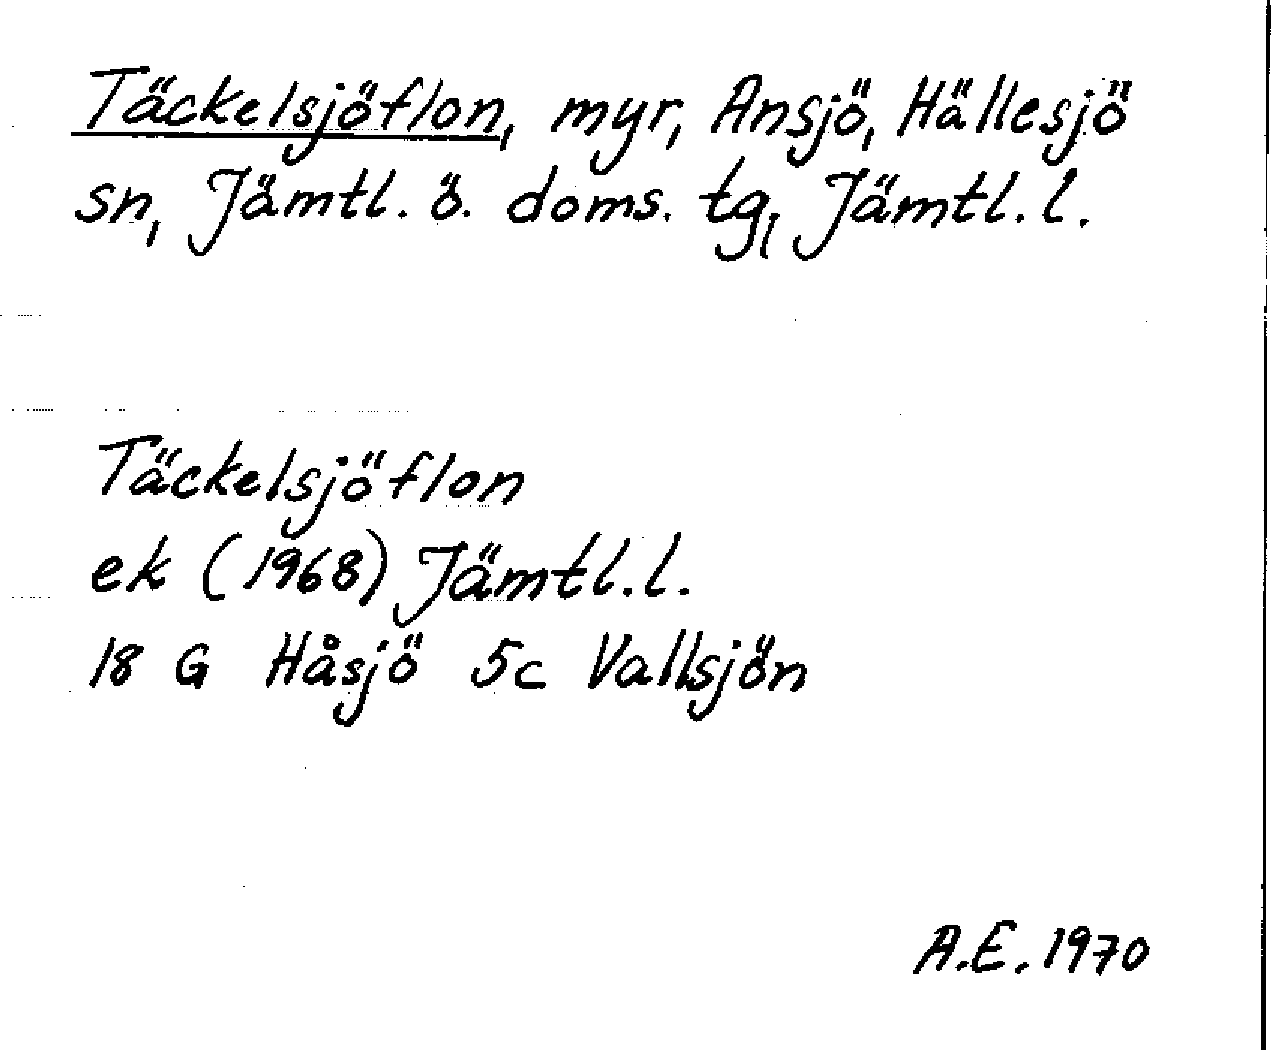 Täckelsjöflon, myr, Ansjö, Hällesjö
sn, Jämtl. ö. doms. tg, Jämtl. l.
Täckelsjöflon
ek (1968) Jämtl. l.
18 G Håsjö 5c Vallsjön
A.E. 1970